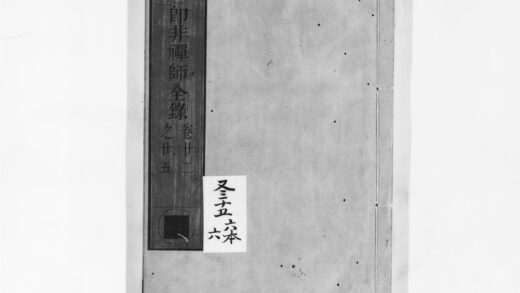 即非禪師全錄
卷廿二
之廿五
又三十五
六本
六